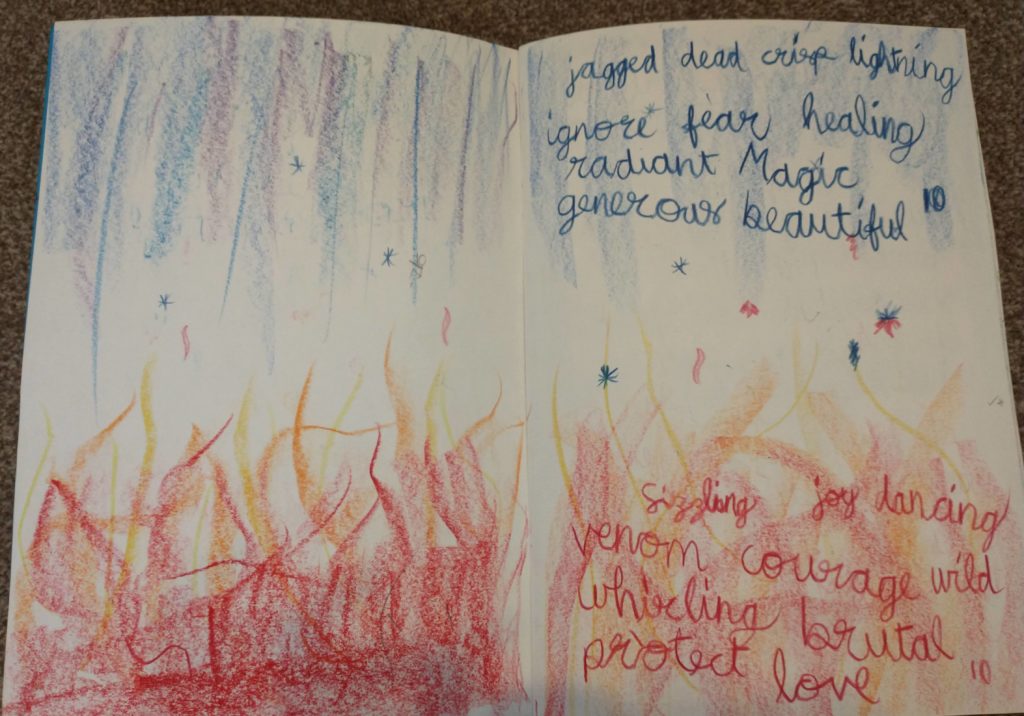 jagged dead crisp lightning
ignore fear healing
radiant Magic
generous beautiful 10
sizzling joy dancing
venom courage wild
whirling brutal
protect love 10